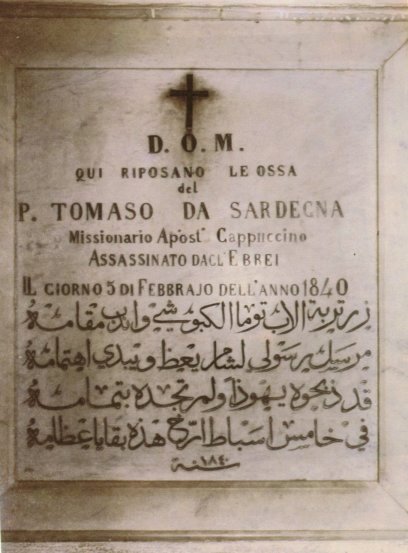 D. O. M.
QUI RIPOSANO LE OSSA
del
P. TOMASO DA SARDEGNA
Missionario Apost. Cappuccino
ASSASSINATO DAGL'EBREI
IL GIORNO 5 DI FEBBRAJO DELL'ANNO 1840
زر تربة الاب توما الكبوشي واندب مقامه
مرسل برسولي لشام يعظ ويبدي اهتمامه
قد ذبحوه يهوذا ولم تجده بتمامه
في خامس اسباط ارخ هذه بقايا عظامه
سنة ١٨٤٠